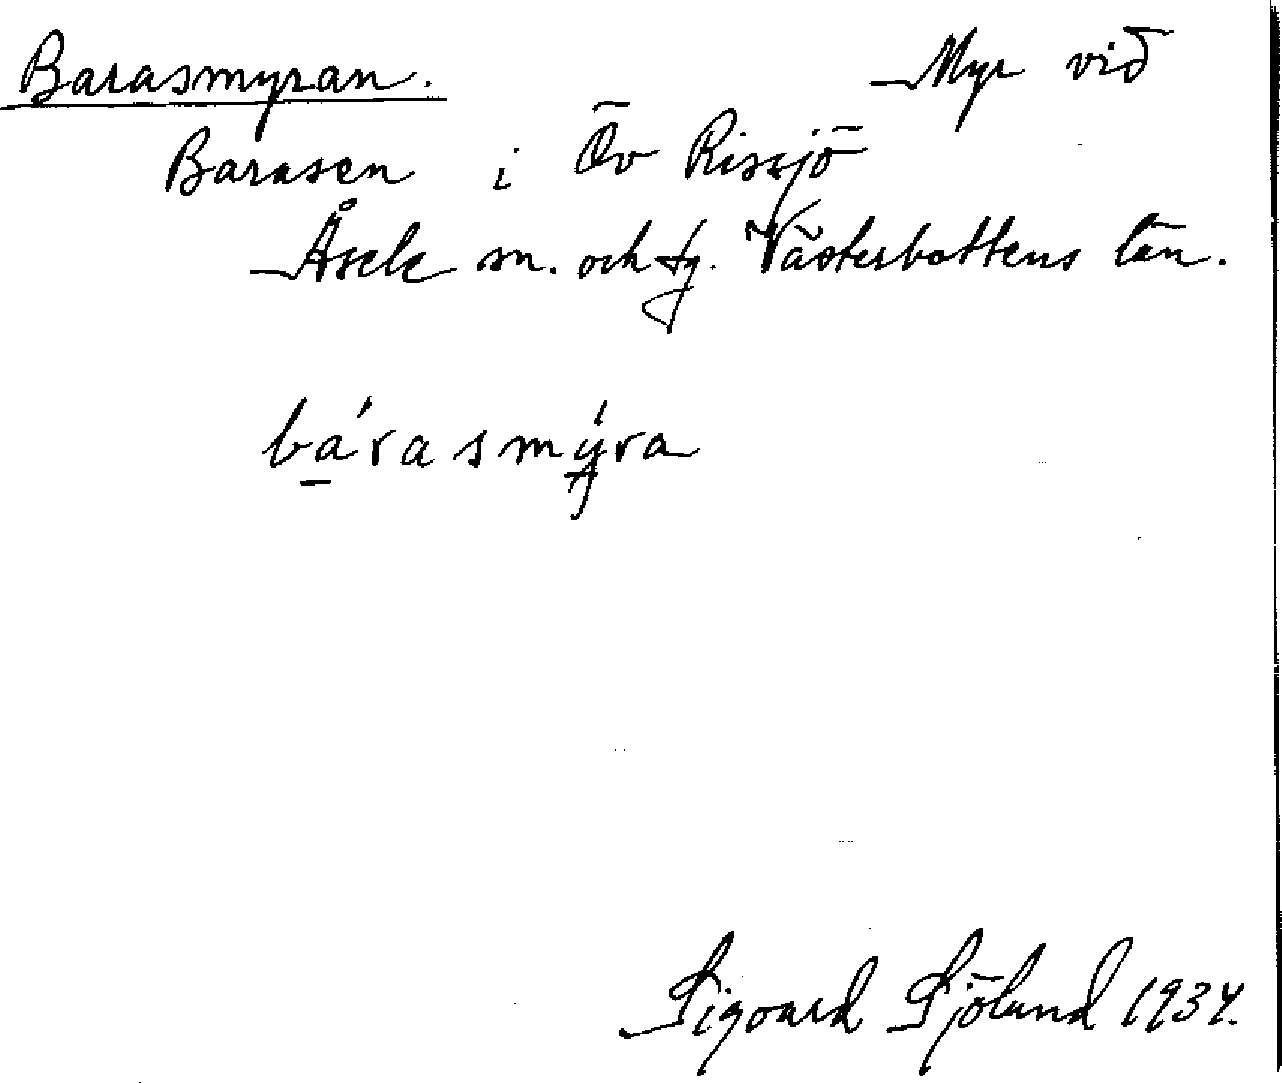 Barasmyran. Myr vid
Barasen i Öv Rissjö
Åsele sn. och tg. Västerbottens län.
bárasmýra
Sigvard Sjölund 1934.